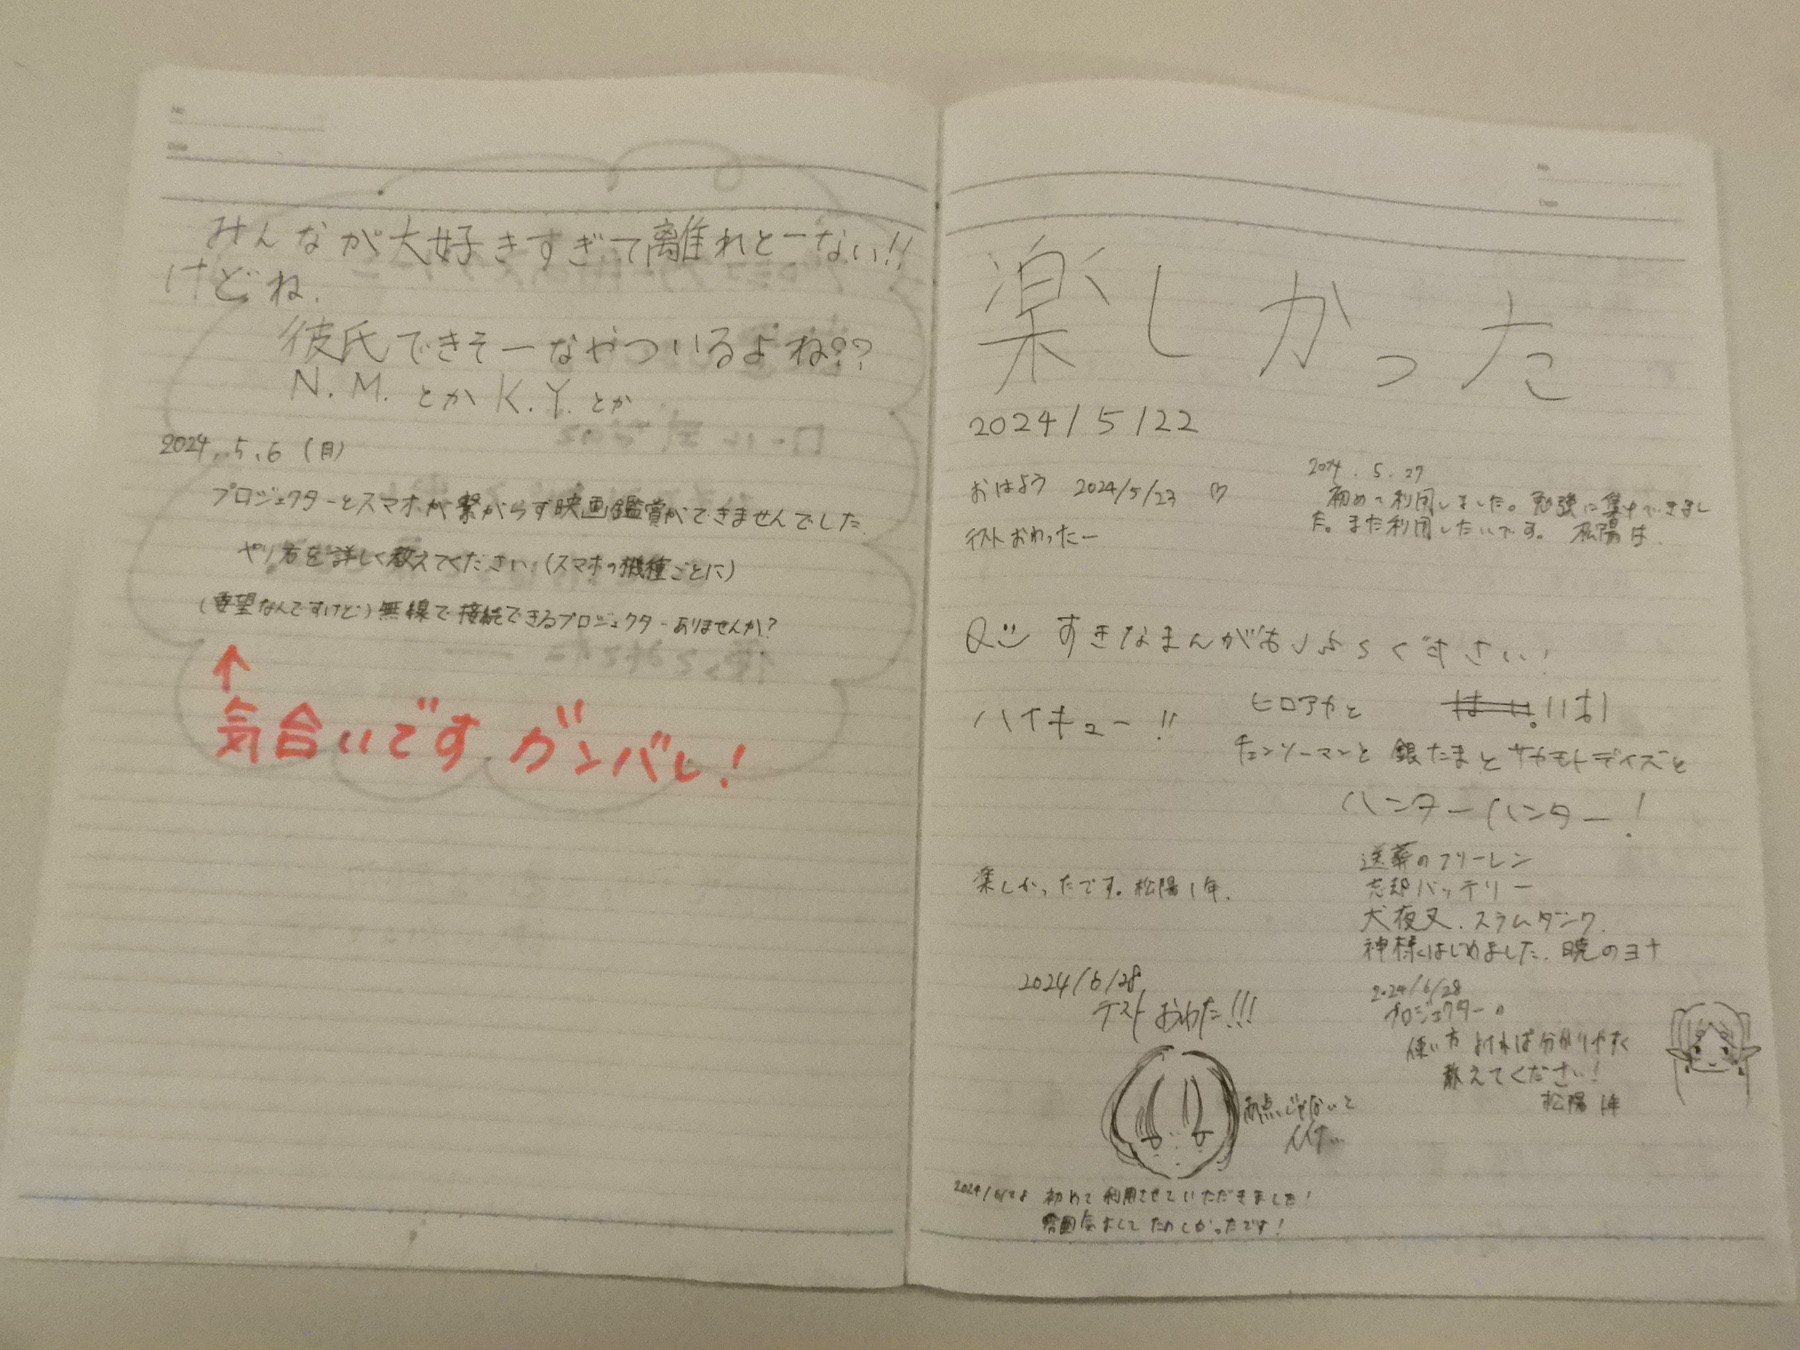 みんなが大好きすぎて離れとーない!!
けどね.
彼氏できそーなやついるよね??
N.M.とかK.Y.とか
2024.5.6(月)
プロジェクターとスマホが繋がらず映画鑑賞ができませんでした.
やり方を詳しく教えてください.(スマホの機種ごとに)
(要望なんですけど)無線で接続できるプロジェクターありませんか?
↑
気合いです ガンバレ!
楽しかった
2024/5/22
おはよう 2024/5/23 ♡
テストおわったー
2024.5.27
初めて利用しました。勉強に集中できまし
た。また利用したいです。 松陽
Q すきなまんが ください!
ハイキュー!!
ヒロアカと
チェンソーマンと 銀たまと サカモトデイズと
ハンターハンター!
送葬のフリーレン
忘却バッテリー
犬夜叉.スラムダンク.
神様はじめました.暁のヨナ
楽しかったです。松陽1年.
2024/6/28
テストおわた!!!
赤点じゃないと
いいな...
2024/6/28
プロジェクターの
使い方よければ分かりやすく
教えてください!
松陽1年
2024/6/28 初めて利用させていただきました!
雰囲気よくて たのしかったです!